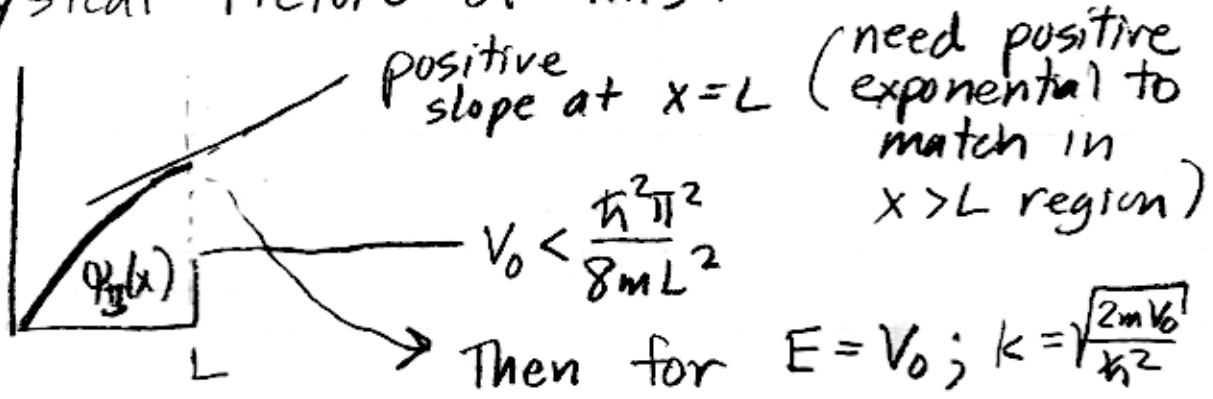 ysical Picture of this:
positive slope at x = L (need positive exponential to match in x > L region)
ψ_II(x)
V₀ < ħ²π² / 8mL²
L
Then for E = V₀ ; k = √(2mV₀ / ħ²)